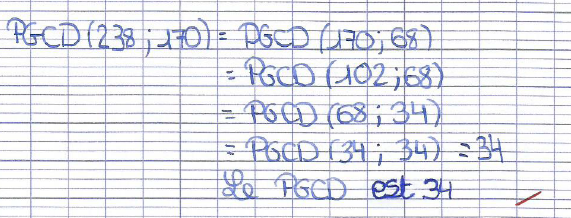 PGCD (238 ; 170) = PGCD (170 ; 68)
= PGCD (102 ; 68)
= PGCD (68 ; 34)
= PGCD (34 ; 34) = 34
Le PGCD est 34